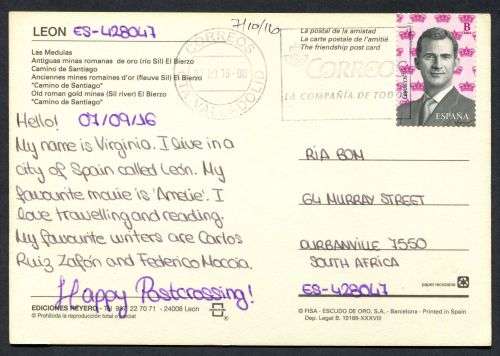 LEON ES-428047
7/10/16
Las Medulas
Antiguas minas romanas de oro (río Sil) El Bierzo
Camino de Santiago
Anciennes mines romaines d'or (fleuve Sil) El Bierzo
"Camino de Santiago"
Old roman gold mines (Sil river) El Bierzo
"Camino de Santiago"
La postal de la amistad
La carte postale de l'amitié
The friendship post card
CORREOS
VALLADOLID
CORREOS
LA COMPAÑÍA DE TODOS
B
CORREOS
ESPAÑA
Hello! 07/09/16
My name is Virginia. I live in a
city of Spain called León. My
favourite movie is 'Amelie'. I
love travelling and reading.
My favourite writers are Carlos
Ruiz Zafón and Federico Moccia.
Happy Postcrossing!
RIA BOM
64 MURRAY STREET
DURBANVILLE 7550
SOUTH AFRICA
ES-428047
papel reciclable
EDICIONES REYERO - Tel. 987 22 70 71 - 24008 León
® Prohibida la reproducción total o parcial
© FISA - ESCUDO DE ORO, S.A., - Barcelona - Printed in Spain
Dep. Legal B. 12188-XXXVIII